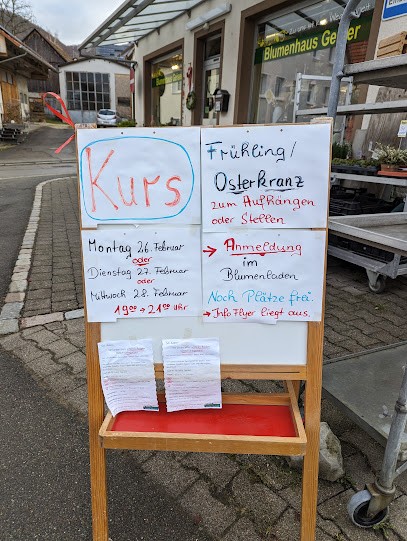 Blumenhaus Geiger
Kurs
Frühling/
Osterkranz
zum Aufhängen
oder Stellen
Montag 26. Februar
oder
Dienstag 27. Februar
oder
Mittwoch 28. Februar
19⁰⁰ - 21⁰⁰ Uhr
→ Anmeldung
im
Blumenladen
Noch Plätze frei.
→ Info Flyer liegt aus.